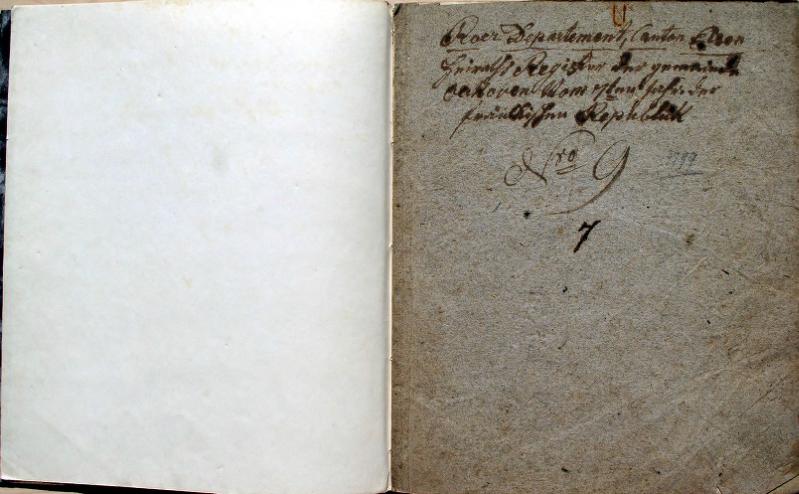 Roer Departement, Canton Elsen
Heiraths Register der gemeinde
Vom 7ten Jahr der
fränkischen Republick
Nro 9
1799
7